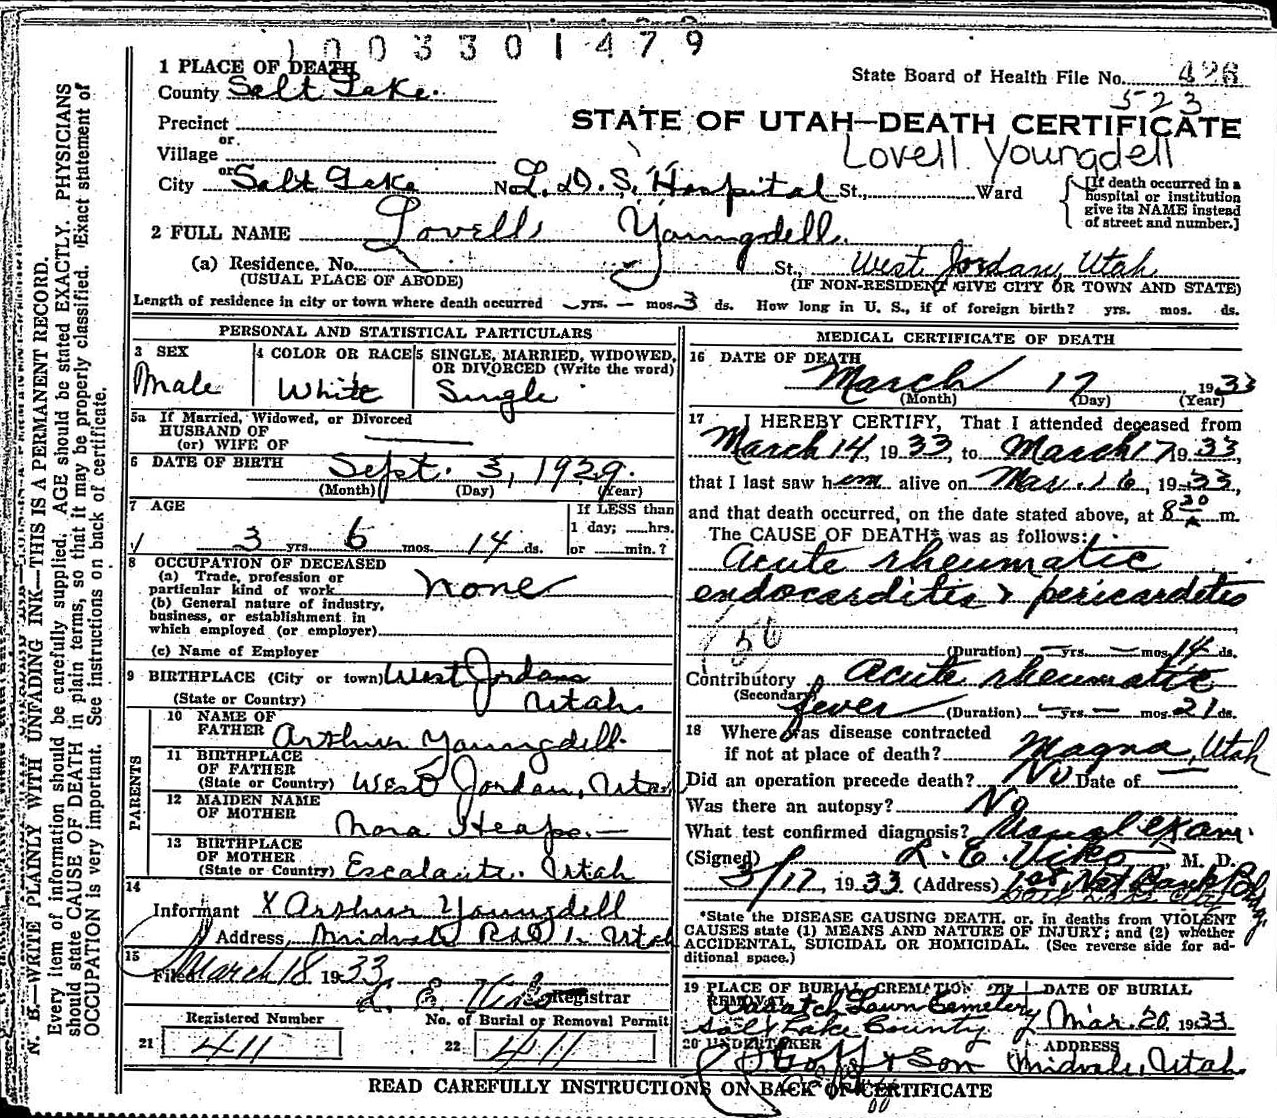 1003301479
1 PLACE OF DEATH
State Board of Health File No. 426
County Salt Lake.
523
Precinct
STATE OF UTAH—DEATH CERTIFICATE
or
Village
Lovell Youngdell
City or Salt Lake No. L.D.S. Hospital St., Ward
[If death occurred in a hospital or institution give its NAME instead of street and number.]
2 FULL NAME Lovell Youngdell.
(a) Residence, No. St., West Jordan, Utah
(USUAL PLACE OF ABODE) (IF NON-RESIDENT GIVE CITY OR TOWN AND STATE)
Length of residence in city or town where death occurred – yrs. – mos. 3 ds. How long in U. S., if of foreign birth? yrs. mos. ds.
PERSONAL AND STATISTICAL PARTICULARS
3 SEX 4 COLOR OR RACE 5 SINGLE, MARRIED, WIDOWED, OR DIVORCED (Write the word)
Male White Single
5a If Married, Widowed, or Divorced
HUSBAND OF
(or) WIFE OF
6 DATE OF BIRTH Sept. 3, 1929.
(Month) (Day) (Year)
7 AGE
If LESS than
1 day; hrs.
3 yrs. 6 mos. 14 ds. or min.?
8 OCCUPATION OF DECEASED
(a) Trade, profession or
particular kind of work none
(b) General nature of industry,
business, or establishment in
which employed (or employer)
(c) Name of Employer
9 BIRTHPLACE (City or town) West Jordan
(State or Country) Utah
PARENTS
10 NAME OF
FATHER Arthur Youngdell.
11 BIRTHPLACE
OF FATHER
(State or Country) West Jordan, Utah
12 MAIDEN NAME
OF MOTHER
Nora Heaps.—
13 BIRTHPLACE
OF MOTHER
(State or Country) Escalante. Utah
14
Informant X Arthur Youngdell
Address, Midvale R.D. 1. Utah
15
Filed March 18 1933
L. E. Viko Registrar
Registered Number No. of Burial or Removal Permit
21 411 22 411
MEDICAL CERTIFICATE OF DEATH
16 DATE OF DEATH
March 17, 1933
(Month) (Day) (Year)
17 I HEREBY CERTIFY, That I attended deceased from
March 14, 1933, to March 17 1933,
that I last saw him alive on Mar. 16, 1933,
and that death occurred, on the date stated above, at 8 30 A m.
The CAUSE OF DEATH* was as follows:
Acute rheumatic
endocarditis & pericarditis
56
(Duration) – yrs. – mos. 14 ds.
Contributory Acute rheumatic
(Secondary) fever (Duration) – yrs. – mos. 21 ds.
18 Where was disease contracted
if not at place of death? Magna, Utah
Did an operation precede death? No Date of —
Was there an autopsy? No
What test confirmed diagnosis? Usual exam.
(Signed) L. E. Viko, M. D.
3/17, 1933 (Address) 1st Nat Bank Bldg.
Salt Lake City
*State the DISEASE CAUSING DEATH. or, in deaths from VIOLENT
CAUSES state (1) MEANS AND NATURE OF INJURY; and (2) whether
ACCIDENTAL, SUICIDAL OR HOMICIDAL. (See reverse side for ad-
ditional space.)
19 PLACE OF BURIAL, CREMATION OR REMOVAL DATE OF BURIAL
Wasatch Lawn Cemetery
Salt Lake County Mar. 20, 1933
20 UNDERTAKER ADDRESS
Goff & Son Midvale, Utah
READ CAREFULLY INSTRUCTIONS ON BACK OF CERTIFICATE
N. B.—WRITE PLAINLY WITH UNFADING INK—THIS IS A PERMANENT RECORD.
Every item of information should be carefully supplied. AGE should be stated EXACTLY. PHYSICIANS
should state CAUSE OF DEATH in plain terms, so that it may be properly classified. Exact statement of
OCCUPATION is very important. See instructions on back of certificate.